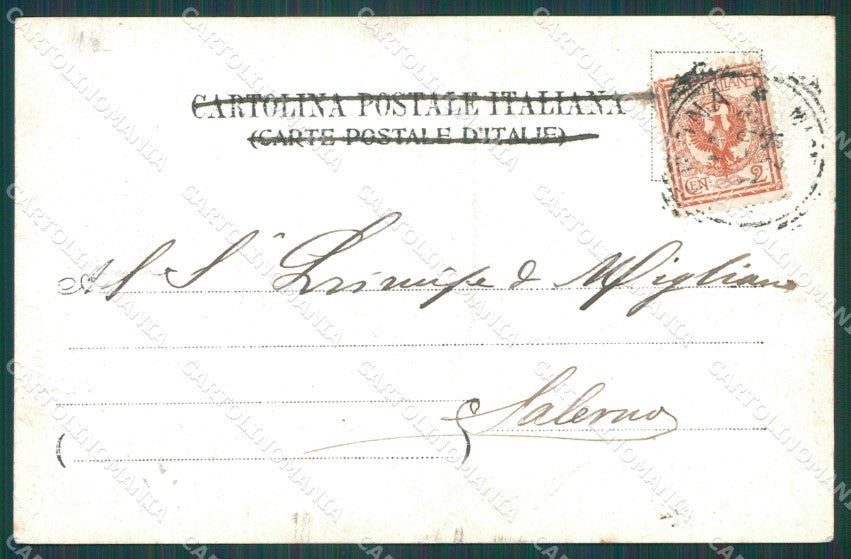 CARTOLINA POSTALE ITALIANA
(CARTE POSTALE D'ITALIE)
CEN 2
A S S Principe d Migliano
Salerno
CARTOLINOMANIA